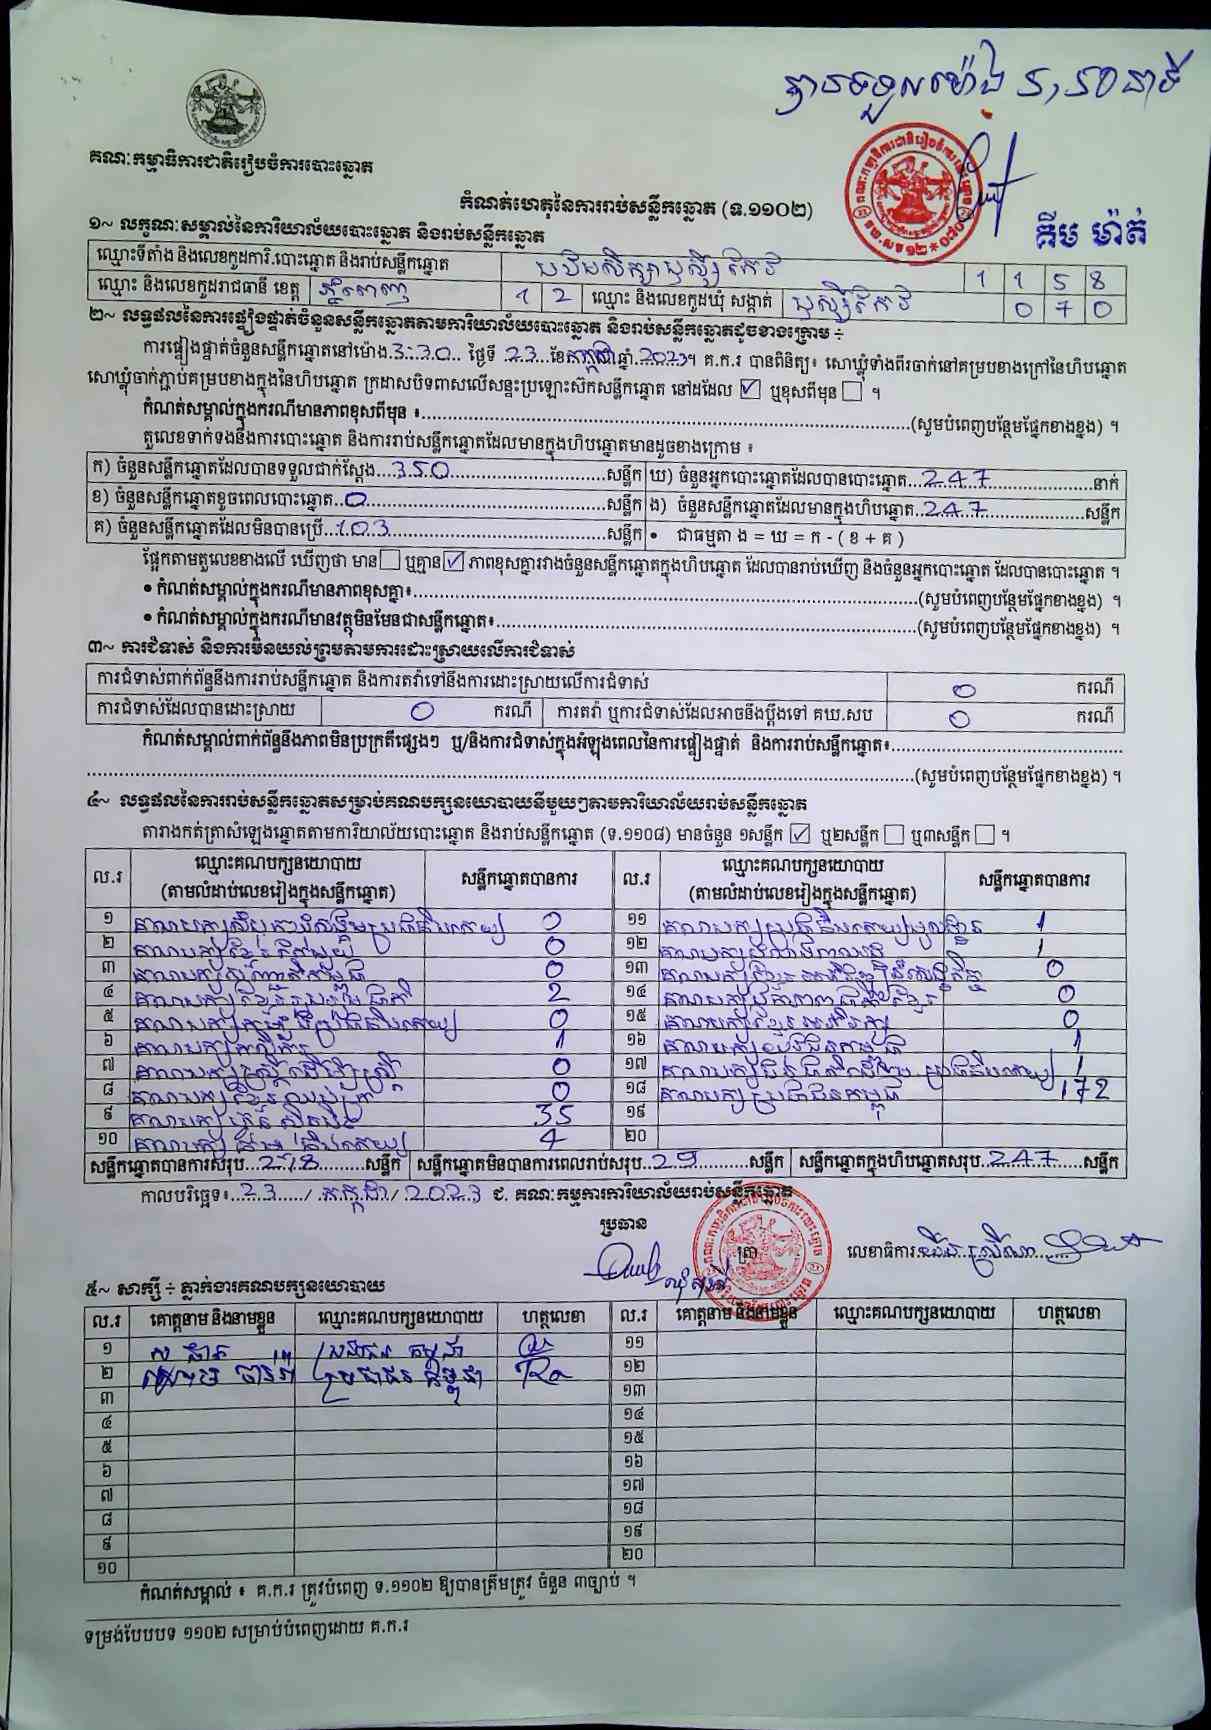 បានទទួលម៉ោង ៥,៥០នាទី
គីម ម៉ាត់
គណៈកម្មាធិការជាតិរៀបចំការបោះឆ្នោត
កំណត់ហេតុនៃការរាប់សន្លឹកឆ្នោត (ទ.១១០២)
១~ លក្ខណៈសម្គាល់នៃការិយាល័យបោះឆ្នោត និងរាប់សន្លឹកឆ្នោត
ឈ្មោះទីតាំង និងលេខកូដការិ.បោះឆ្នោត និងរាប់សន្លឹកឆ្នោត 1 1 5 8
ឈ្មោះ និងលេខកូដរាជធានី ខេត្ត ភ្នំពេញ 1 2 ឈ្មោះ និងលេខកូដឃុំ សង្កាត់ ឫស្សីកែវ 0 7 0
២~ លទ្ធផលនៃការផ្ទៀងផ្ទាត់ចំនួនសន្លឹកឆ្នោតតាមការិយាល័យបោះឆ្នោត និងរាប់សន្លឹកឆ្នោតដូចខាងក្រោម ÷
ការផ្ទៀងផ្ទាត់ចំនួនសន្លឹកឆ្នោតនៅម៉ោង 3:30 ថ្ងៃទី 23 ខែ កក្កដា ឆ្នាំ 2023 ។ គ.ក.រ បានពិនិត្យ៖ សោឃ្លុំទាំងពីរចាក់នៅគម្របខាងក្រៅនៃហិបឆ្នោត
សោឃ្លុំចាក់ភ្ជាប់គម្របខាងក្នុងនៃហិបឆ្នោត ក្រដាសបិទពាសលើសន្ទះប្រឡោះស៊កសន្លឹកឆ្នោត នៅដដែល ☑ ឬខុសពីមុន ☐ ។
កំណត់សម្គាល់ក្នុងករណីមានភាពខុសពីមុន ៖ (សូមបំពេញបន្ថែមផ្នែកខាងខ្នង) ។
តួលេខទាក់ទងនឹងការបោះឆ្នោត និងការរាប់សន្លឹកឆ្នោតដែលមានក្នុងហិបឆ្នោតមានដូចខាងក្រោម ៖
ក) ចំនួនសន្លឹកឆ្នោតដែលបានទទួលជាក់ស្តែង 350 សន្លឹក ឃ) ចំនួនអ្នកបោះឆ្នោតដែលបានបោះឆ្នោត 247 នាក់
ខ) ចំនួនសន្លឹកឆ្នោតខូចពេលបោះឆ្នោត 0 សន្លឹក ង) ចំនួនសន្លឹកឆ្នោតដែលមានក្នុងហិបឆ្នោត 247 សន្លឹក
គ) ចំនួនសន្លឹកឆ្នោតដែលមិនបានប្រើ 103 សន្លឹក • ជាធម្មតា ង = ឃ = ក - ( ខ + គ )
ផ្អែកតាមតួលេខខាងលើ ឃើញថា មាន ☐ ឬគ្មាន ☑ ភាពខុសគ្នារវាងចំនួនសន្លឹកឆ្នោតក្នុងហិបឆ្នោត ដែលបានរាប់ឃើញ និងចំនួនអ្នកបោះឆ្នោត ដែលបានបោះឆ្នោត ។
• កំណត់សម្គាល់ក្នុងករណីមានភាពខុសគ្នា៖ (សូមបំពេញបន្ថែមផ្នែកខាងខ្នង) ។
• កំណត់សម្គាល់ក្នុងករណីមានវត្ថុមិនមែនជាសន្លឹកឆ្នោត៖ (សូមបំពេញបន្ថែមផ្នែកខាងខ្នង) ។
៣~ ការជំទាស់ និងការមិនយល់ព្រមតាមការដោះស្រាយលើការជំទាស់
ការជំទាស់ពាក់ព័ន្ធនឹងការរាប់សន្លឹកឆ្នោត និងការតវ៉ាទៅនឹងការដោះស្រាយលើការជំទាស់ 0 ករណី
ការជំទាស់ដែលបានដោះស្រាយ 0 ករណី ការតវ៉ា ឬការជំទាស់ដែលអាចនឹងប្តឹងទៅ គឃ.សប 0 ករណី
កំណត់សម្គាល់ពាក់ព័ន្ធនឹងភាពមិនប្រក្រតីផ្សេងៗ ឬ/និងការជំទាស់ក្នុងអំឡុងពេលនៃការផ្ទៀងផ្ទាត់ និងការរាប់សន្លឹកឆ្នោត៖
(សូមបំពេញបន្ថែមផ្នែកខាងខ្នង) ។
៤~ លទ្ធផលនៃការរាប់សន្លឹកឆ្នោតសម្រាប់គណបក្សនយោបាយនីមួយៗតាមការិយាល័យរាប់សន្លឹកឆ្នោត
តារាងកត់ត្រាសំឡេងឆ្នោតតាមការិយាល័យបោះឆ្នោត និងរាប់សន្លឹកឆ្នោត (ទ.១១០៨) មានចំនួន ១សន្លឹក ☑ ឬ២សន្លឹក ☐ ឬ៣សន្លឹក ☐ ។
ល.រ ឈ្មោះគណបក្សនយោបាយ (តាមលំដាប់លេខរៀងក្នុងសន្លឹកឆ្នោត) សន្លឹកឆ្នោតបានការ ល.រ ឈ្មោះគណបក្សនយោបាយ (តាមលំដាប់លេខរៀងក្នុងសន្លឹកឆ្នោត) សន្លឹកឆ្នោតបានការ
១ 0 ១១ គណបក្សប្រជាធិបតេយ្យមូលដ្ឋាន 1
២ 0 ១២ 1
៣ 0 ១៣ 0
៤ គណបក្សខ្មែររួបរួមជាតិ 2 ១៤ 0
៥ 0 ១៥ គណបក្សខ្មែរអភិរក្ស 0
៦ គណបក្សកសិករ 1 ១៦ គណបក្សយុវជនកម្ពុជា 1
៧ គណបក្សស្ត្រីដើម្បីស្ត្រី 0 ១៧ 1
៨ គណបក្សខ្មែរឈប់ក្រ 0 ១៨ គណបក្សប្រជាជនកម្ពុជា 172
៩ គណបក្សហ្វ៊ុនស៊ិនប៉ិច 35 ១៩
១០ 4 ២០
សន្លឹកឆ្នោតបានការសរុប 218 សន្លឹក សន្លឹកឆ្នោតមិនបានការពេលរាប់សរុប 29 សន្លឹក សន្លឹកឆ្នោតក្នុងហិបឆ្នោតសរុប 247 សន្លឹក
កាលបរិច្ឆេទ៖ 23 / កក្កដា / 2023 ជ. គណៈកម្មការការិយាល័យរាប់សន្លឹកឆ្នោត
ប្រធាន ត្រា លេខាធិការ
៥~ សាក្សី ÷ ភ្នាក់ងារគណបក្សនយោបាយ
ល.រ គោត្តនាម និងនាមខ្លួន ឈ្មោះគណបក្សនយោបាយ ហត្ថលេខា ល.រ គោត្តនាម និងនាមខ្លួន ឈ្មោះគណបក្សនយោបាយ ហត្ថលេខា
១ ប្រជាជន កម្ពុជា ១១
២ ប្រជាជន កម្ពុជា ១២
៣ ១៣
៤ ១៤
៥ ១៥
៦ ១៦
៧ ១៧
៨ ១៨
៩ ១៩
១០ ២០
កំណត់សម្គាល់ ៖ គ.ក.រ ត្រូវបំពេញ ទ.១១០២ ឱ្យបានត្រឹមត្រូវ ចំនួន ៣ច្បាប់ ។
ទម្រង់បែបបទ ១១០២ សម្រាប់បំពេញដោយ គ.ក.រ